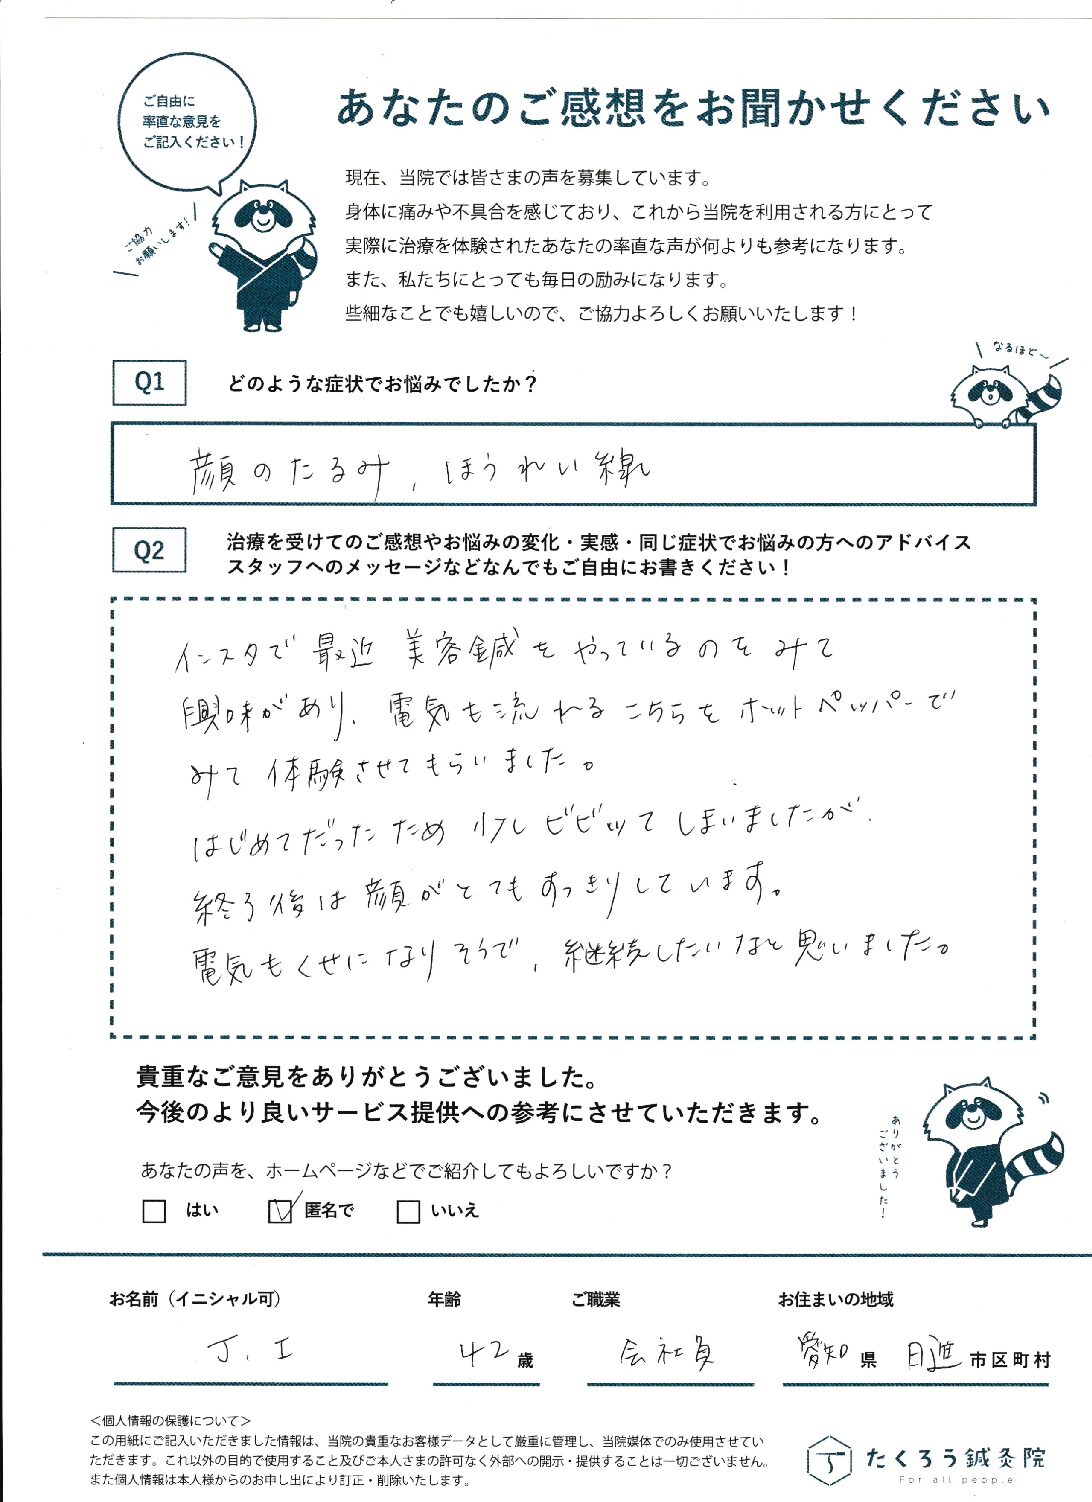 ご自由に
率直な意見を
ご記入ください！
ご協力
お願いします！
あなたのご感想をお聞かせください
現在、当院では皆さまの声を募集しています。
身体に痛みや不具合を感じており、これから当院を利用される方にとって
実際に治療を体験されたあなたの率直な声が何よりも参考になります。
また、私たちにとっても毎日の励みになります。
些細なことでも嬉しいので、ご協力よろしくお願いいたします！
なるほど〜
Q1 どのような症状でお悩みでしたか？
顔のたるみ、ほうれい線
Q2 治療を受けてのご感想やお悩みの変化・実感・同じ症状でお悩みの方へのアドバイス
スタッフへのメッセージなどなんでもご自由にお書きください！
インスタで最近 美容鍼をやっているのをみて
興味があり、電気も流れるこちらをホットペッパーで
みて体験させてもらいました。
はじめてだったため少しビビッてしまいましたが、
終了後は顔がとてもすっきりしています。
電気もくせになりそうで、継続したいなと思いました。
貴重なご意見をありがとうございました。
今後のより良いサービス提供への参考にさせていただきます。
ありがとう
ございました！
あなたの声を、ホームページなどでご紹介してもよろしいですか？
はい 匿名で いいえ
お名前（イニシャル可） 年齢 ご職業 お住まいの地域
J. I 42歳 会社員 愛知県 日進市区町村
＜個人情報の保護について＞
この用紙にご記入いただきました情報は、当院の貴重なお客様データとして厳重に管理し、当院媒体でのみ使用させてい
ただきます。これ以外の目的で使用すること及びご本人さまの許可なく外部への開示・提供することは一切ございません。
また個人情報は本人様からのお申し出により訂正・削除いたします。
たくろう鍼灸院
For all people